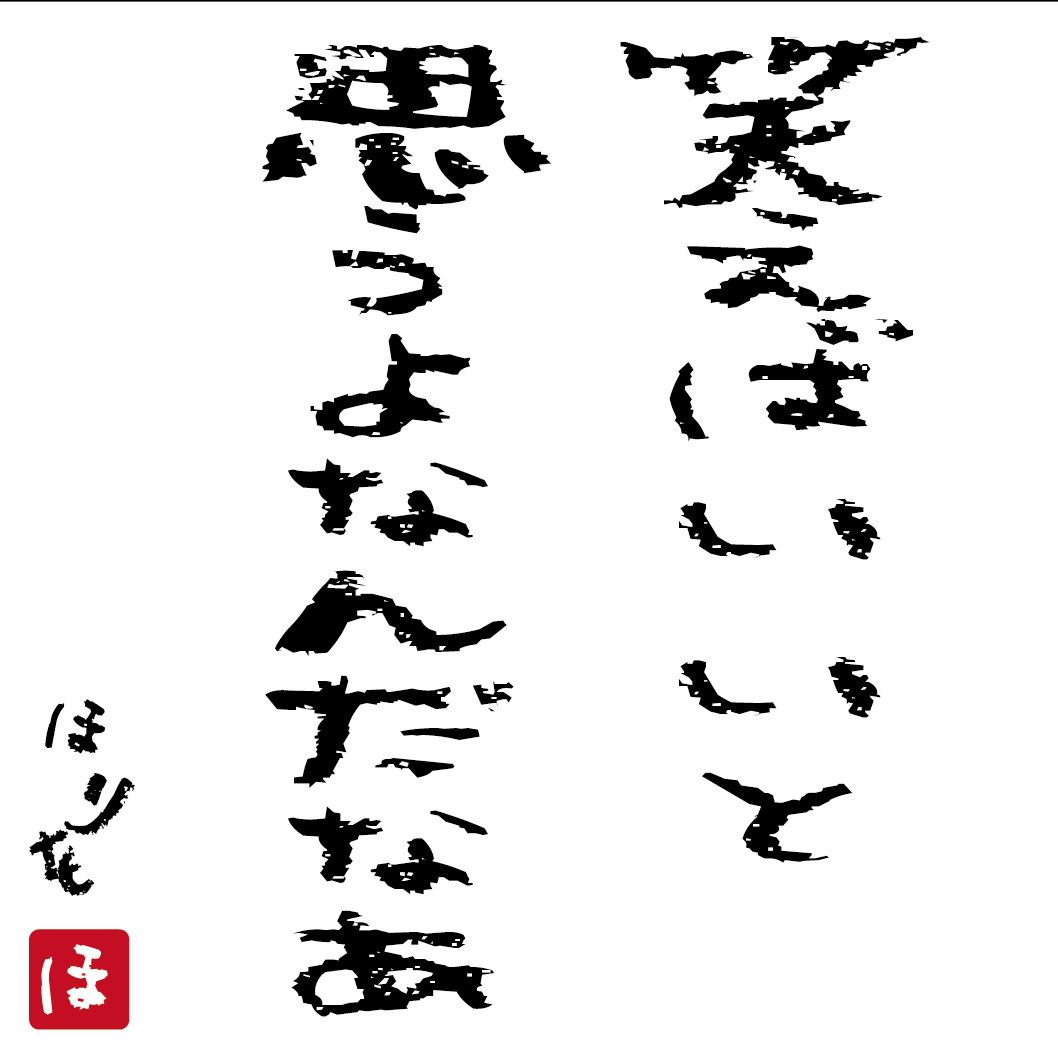 笑えばいいと
思うよなんだなあ
ほりを
ほ